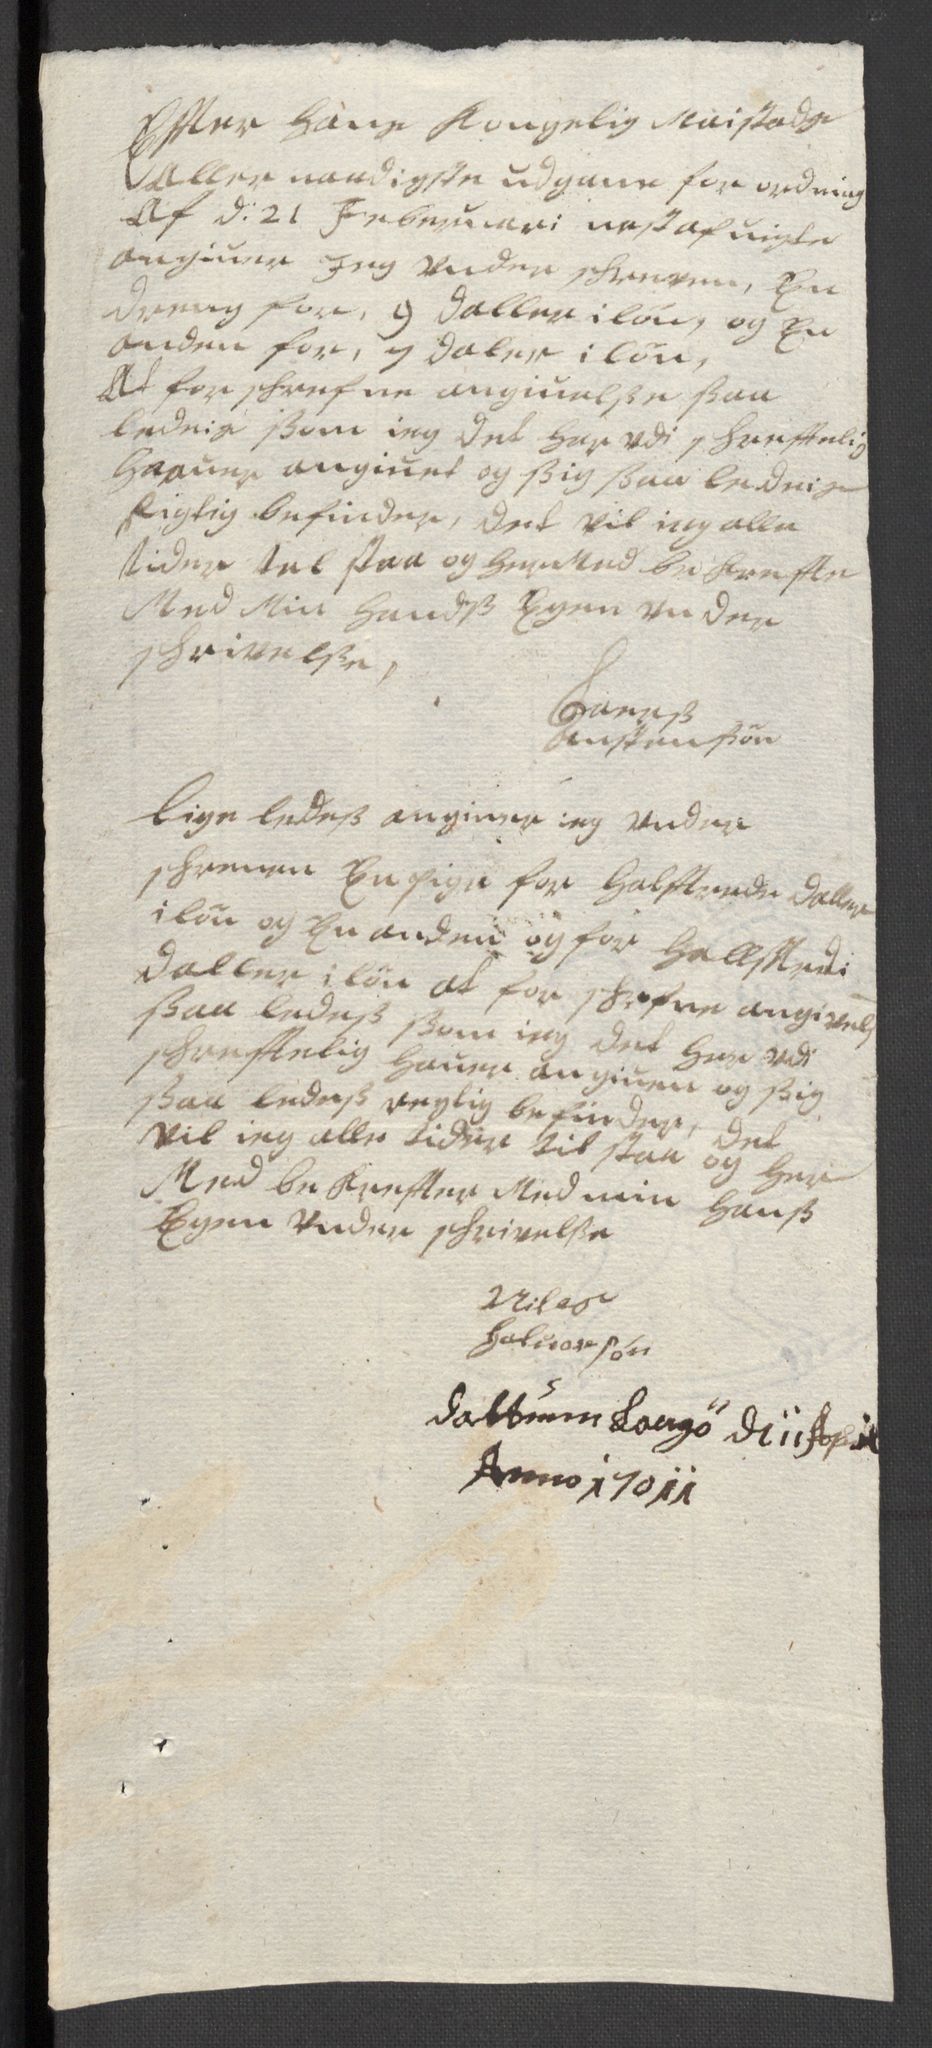 Effter Hans Kongelig Maiistads
Aller naadigste udgane for ordning
Af d: 21 Feberuari nest afuigte
angiuer Jeg Vnder schreven, En
dreng for, 9 daller i lön, og En
anden for, 7 daler i lön,
At for schrefne angiuelsse ssaa
ledeis ssom ieg det her vdi schrefftelig
Haauer angiuet og ssig ssaa ledeis
Rigtig befinder, det vil ieg alle
tider tel staa og her Med be kreffte
Med Min Handss Egen Vnder
schrivelsse,
Larss
Anstenssön
lige ledess angiuer ieg Vnder
schreuen En pige for Halfftrede daller
i lön og En anden og for Hallfftredi
daller i lön at for schrefne angivels
ssaa ledess ssom ieg det her vdi
schrefftelig Hauer angiuen og ssig
ssaa ledess regtig befinder, det
vil ieg alle tider til staa og her
Med be kreffter Med min Hanss
Egen Vnder schrivelsse
Niles
Haluorsön
dattum Langö d 11 April
Anno 1711